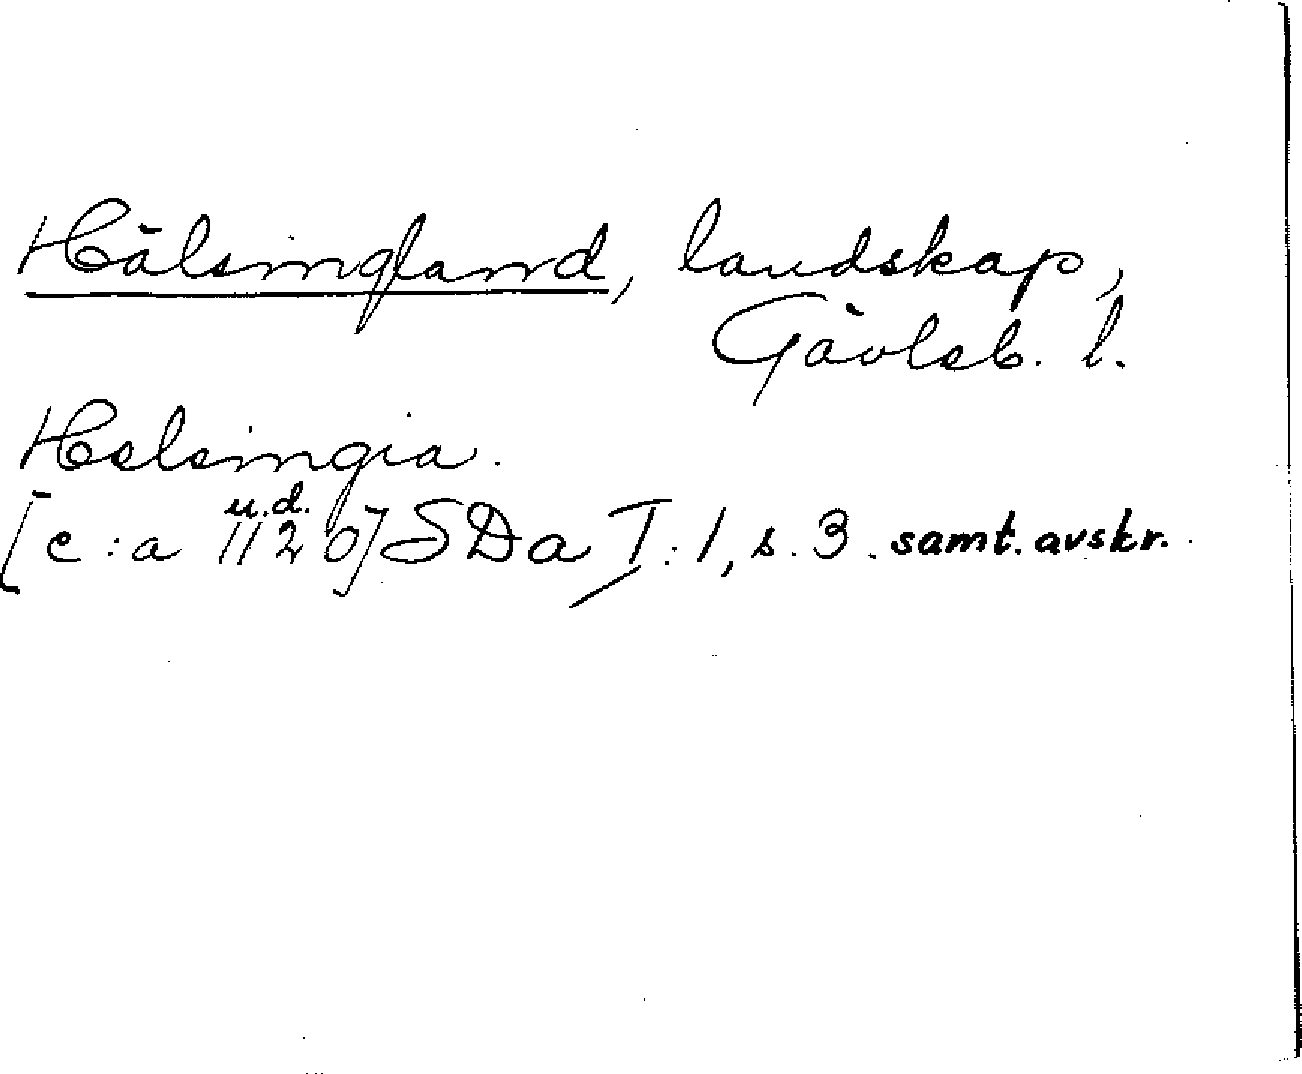 Hälsingland, landskap,
Gävleb. l.
Helsingia.
u.d.
[c:a 1120] SDa I:1, s. 3. samt. avskr.